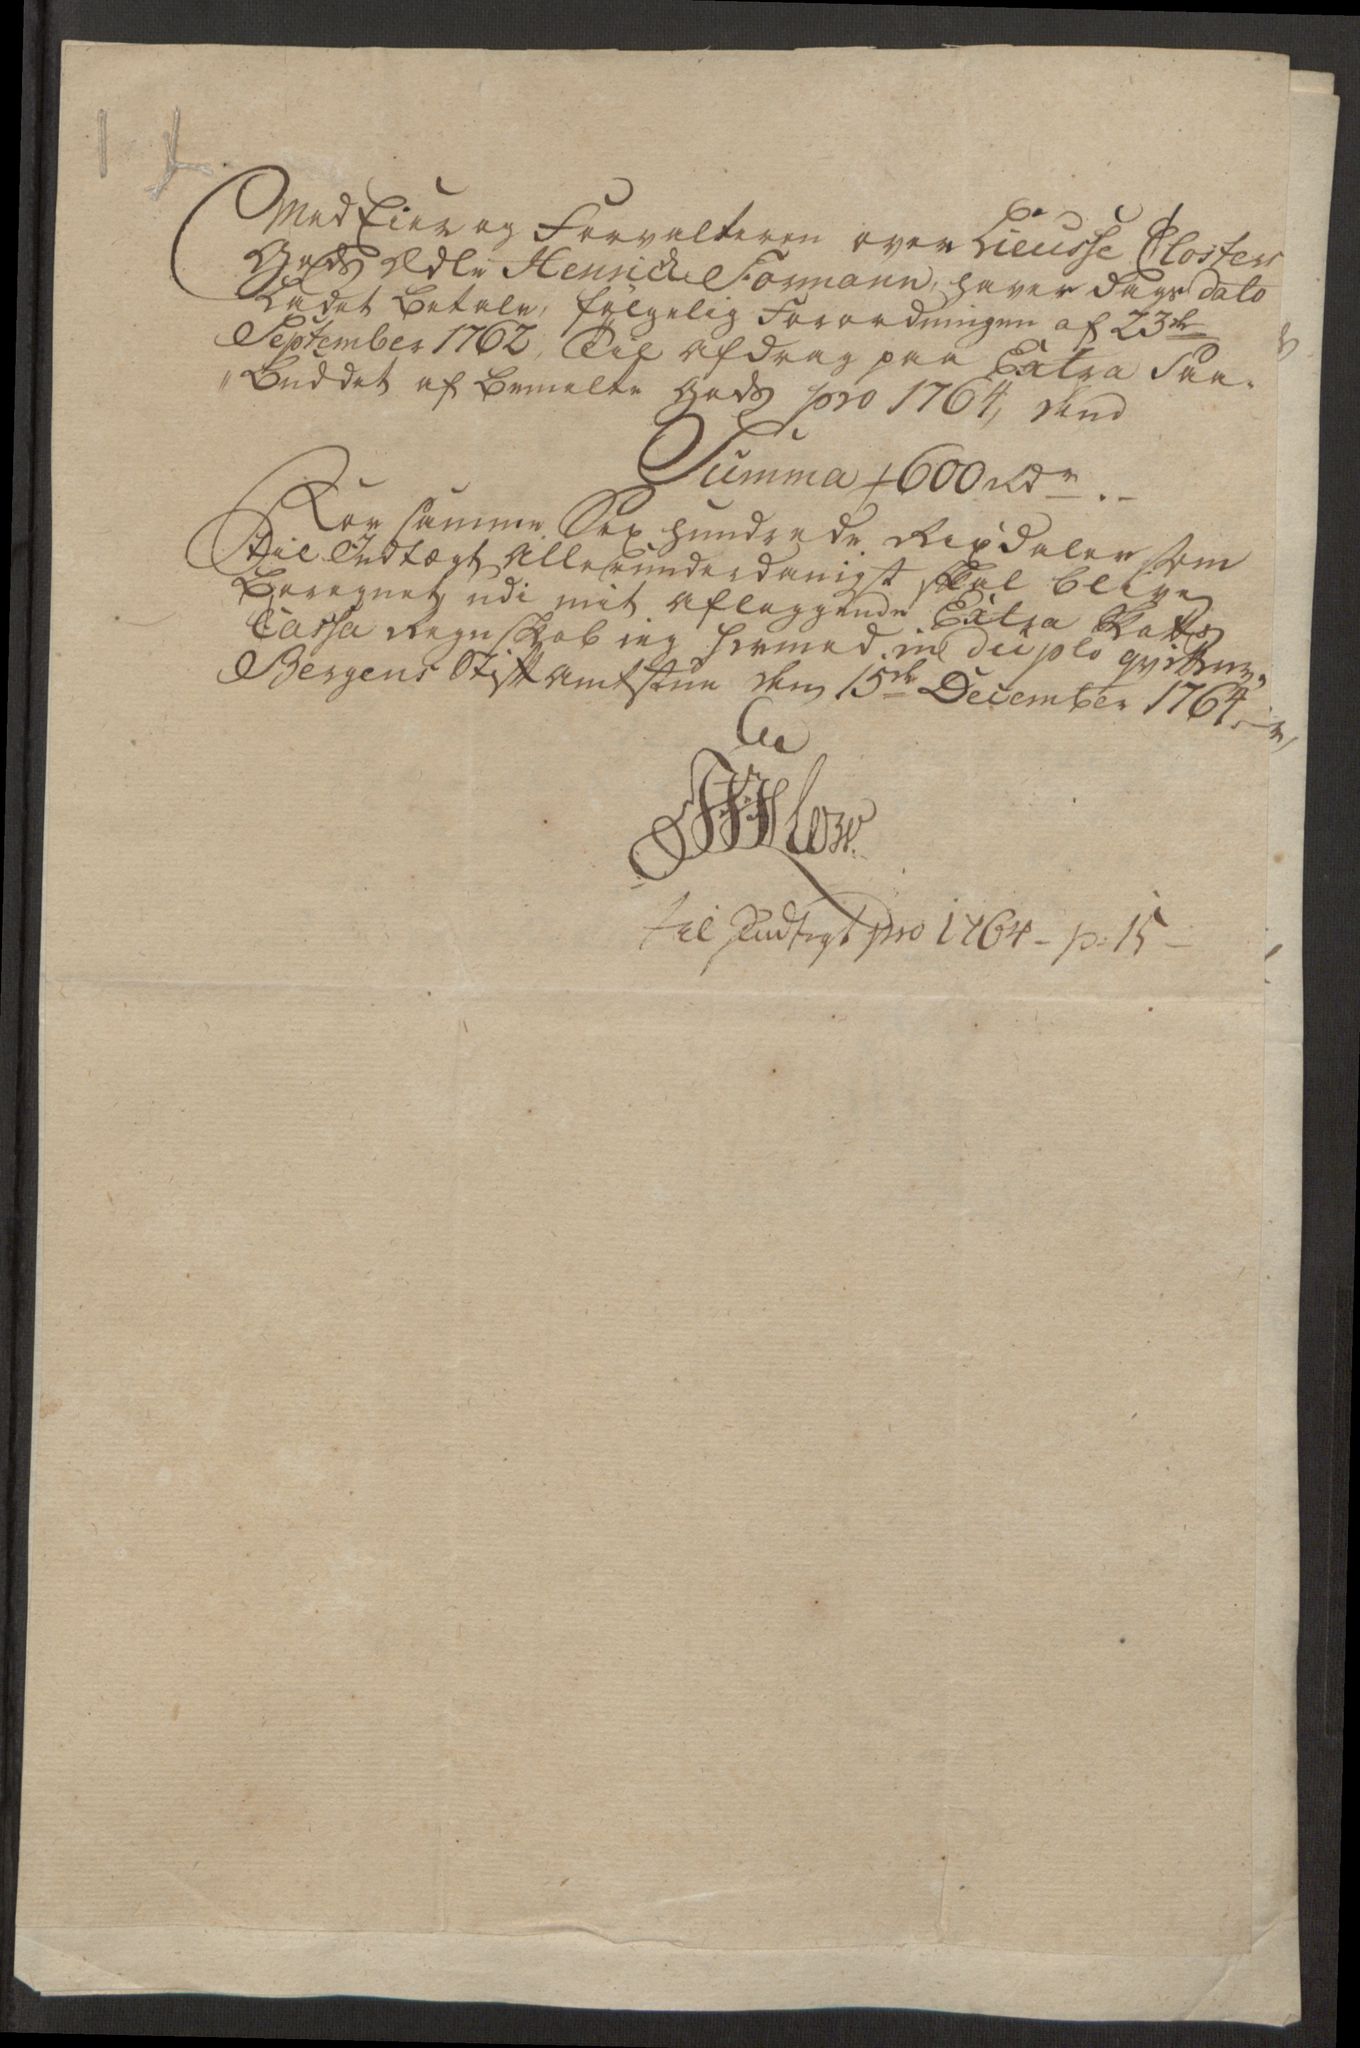 Med Eier og Forvalteren over Lieusse Closters
Gods Edle Henrich Formann, haver dags dato
Ladet betale, følgelig Forordningen af 23de
September 1762, Til afdrag paa Extra Paa-
"buddet af bemelte Gods pro 1764, dend
Summa 600 Rdr.
For samme Sex hundrede Rixdaler som
til Indtægt Allerunderdanigst skal blive
beregnet, udi mit aflæggende Extra Skatts
Cassa Regnskab ieg hermed in duplo qvitterer,
Bergens Stiftamtstue dem 15de December 1764
til Indtegt pro 1764 - p: 15 -